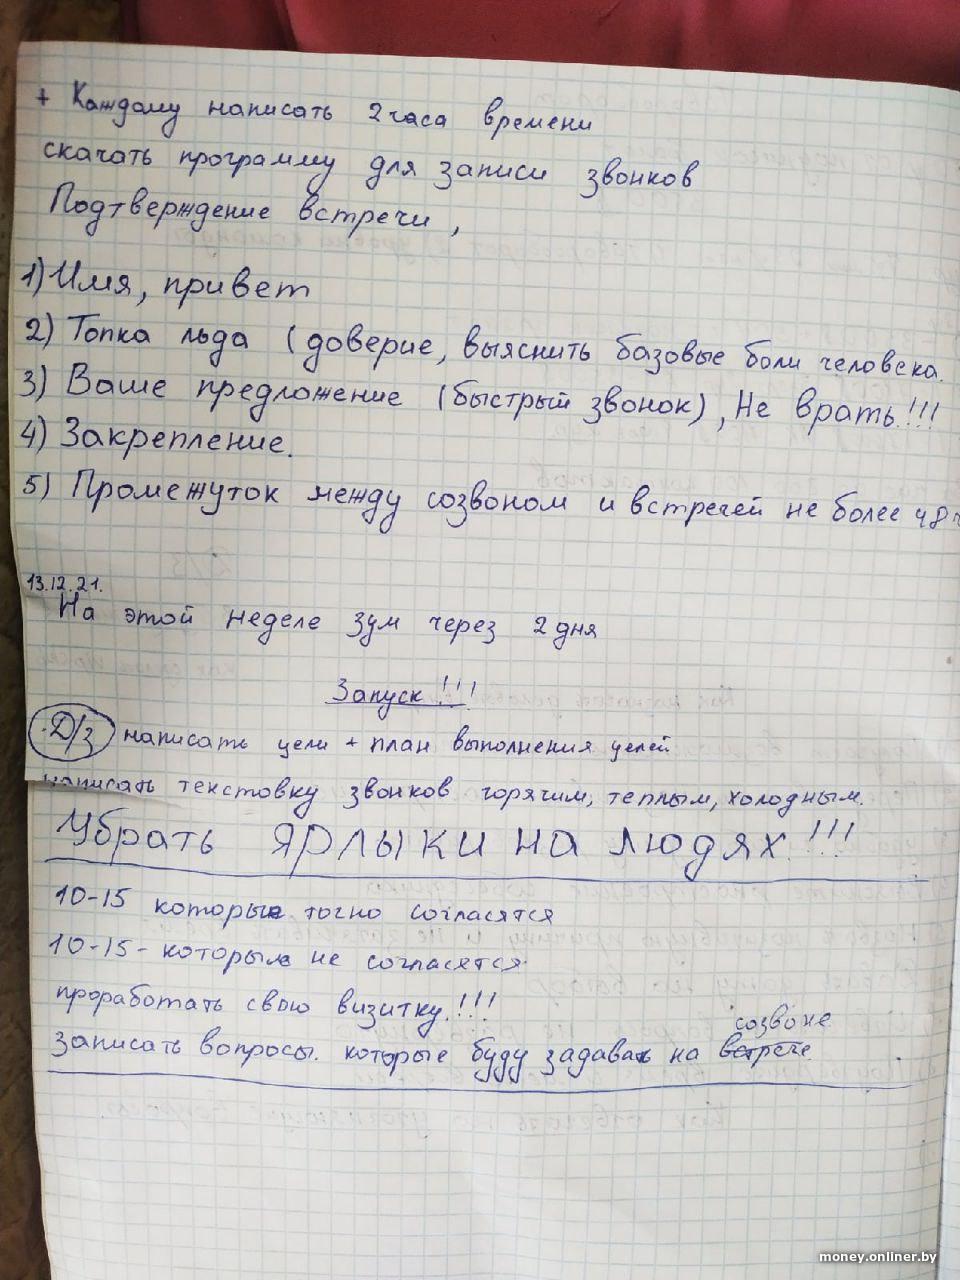 + Каждому написать 2 часа времени
скачать программу для записи звонков
Подтверждение встречи,
1) Имя, привет
2) Топка льда (доверие, выяснить базовые боли человека.
3) Ваше предложение (быстрый звонок), Не врать!!!
4) Закрепление.
5) Промежуток между созвоном и встречей не более 48 ч
13.12.21.
На этой неделе зум через 2 дня
Запуск!!!
Д/з написать цели + план выполнения целей
написать текстовку звонков горячим, теплым, холодным.
Убрать ЯРЛЫКИ НА ЛЮДЯХ!!!
10-15 которые точно согласятся
10-15 - которые не согласятся
проработать свою визитку!!!
созвоне
Записать вопросы. которые буду задавать на встрече
money.onliner.by